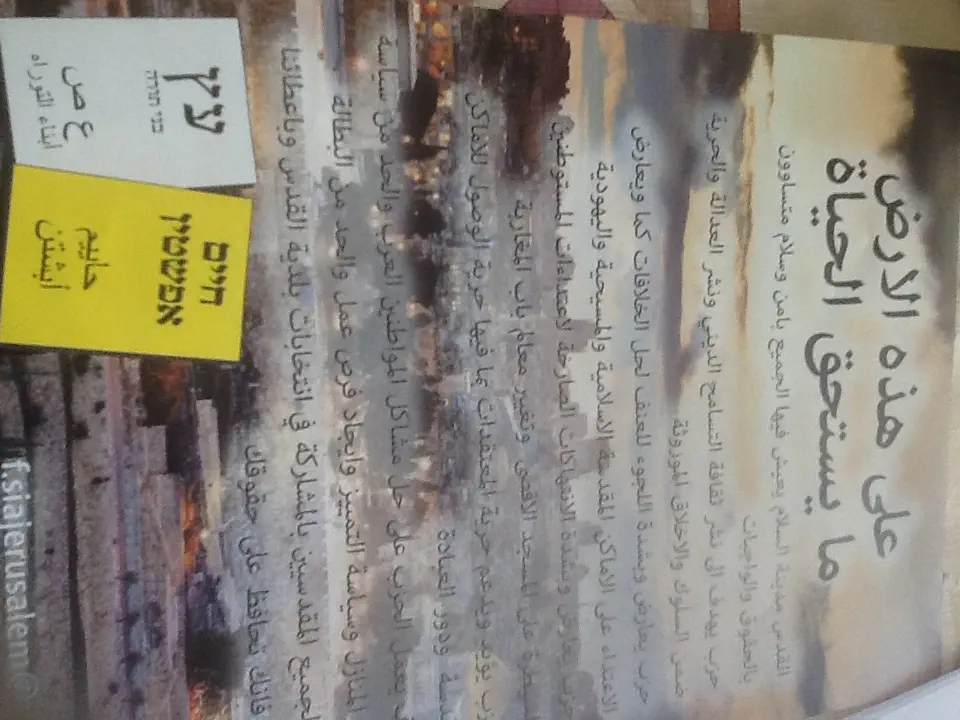 على هذه الارض
ما يستحق الحياة
القدس مدينة السلام يعيش فيها الجميع بامن وسلام متساوون
بالحقوق والواجبات
حزب يهدف الى نشر ثقافة التسامح الديني ونشر العدالة والحرية
ضمن السلوك والاخلاق الموروثة
حزب يعارض وبشدة اللجوء للعنف لحل الخلافات كما ويعارض
الاعتداء على الاماكن المقدسة الاسلامية والمسيحية واليهودية
حزب يعارض وبشدة الانتهاكات الصارخة لاعتداءات المستوطنين
السيطرة على المسجد الاقصى وتغيير معالم باب المغاربة
يؤيد ويدعم حرية المعتقدات بما فيها حرية الوصول للاماكن
ودور العبادة
يعمل الحزب على حل مشاكل المواطنين العرب والحد من سياسة
المنازل وسياسة التمييز وايجاد فرص عمل والحد من البطالة
لجميع المقدسيين بالمشاركة في انتخابات بلدية القدس وباعطائنا
فانك تحافظ على حقوقك
עץ
בני תורה
ع ص
ابناء التوراه
חיים
אפשטיין
حاييم
ابشتين
f.siajerusalem@